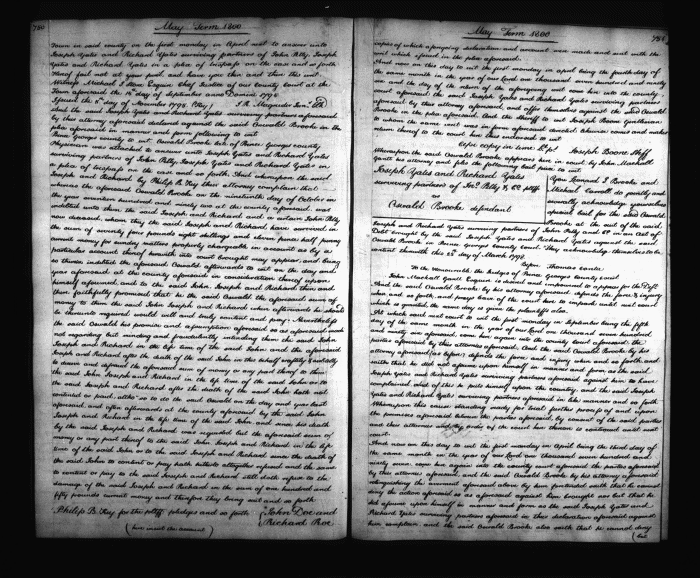 780
May Term 1800
Town in said county on the first monday in April next to answer unto Joseph
Yates and Richard Yates surviving partners of John Petty, Joseph
Yates and Richard Yates in a plea of trespass on the case and so forth
Hereof fail not at your peril and have you then and there this writ
Witness Michael J Stone Esquire Chief Justice of our County Court at the
Town aforesaid the day of September Anno Domini 1798
Issued the 8th day of November 1798
And the said Joseph Yates and Richard Yates surviving partners aforesaid
by their attorney aforesaid declared against the said Oswald Brooke in the
plea aforesaid in manner and form following to wit
Prince Georges county to wit Oswald Brooke late of Prince Georges county
Physician was attached to answer unto Joseph Yates and Richard Yates
surviving partners of John Petty, Joseph Yates and Richard Yates of a
plea of trespass on the case and so forth. And whereupon the said
Joseph and Richard by Philip B. Key their attorney complain that
whereas the aforesaid Oswald Brooke on the nineteenth day of October in
the year seventeen hundred and ninety two at the county aforesaid was
indebted unto them the said Joseph and Richard and a certain John Petty
now deceased, whom they the said Joseph and Richard have survived in
the sum of seventy four pounds eight shillings and eleven pence half penny
current money for sundry matters properly chargeable in account as by a
particular account thereof herewith into court brought may appear, and being
so therein indebted the aforesaid Oswald afterwards to wit on the day and
year aforesaid at the county aforesaid in consideration thereof upon
himself assumed, and to the said John Joseph and Richard then and
there faithfully promised that he the said Oswald the aforesaid sum of
money to them the said John Joseph and Richard when afterwards he should
be thereunto required would well and truly content and pay. Nevertheless
the said Oswald his promise and assumption aforesaid so as aforesaid made
not regarding but minding and fraudulently intending them the said John
Joseph and Richard in the life time of the said John and the aforesaid
Joseph and Richard after the death of the said John in this behalf craftily &
to deceive and defraud the aforesaid sum of money or any part thereof to them
the said John Joseph and Richard in the life time of the said John or to
the said Joseph and Richard after the death of the said John hath not
contented or paid, altho' so to do the said Oswald on the day and year last
aforesaid and often afterwards at the county aforesaid by the said John
Joseph and Richard in the life time of the said John and since his death
by the said Joseph and Richard was requested but the aforesaid sum of
money or any part thereof to the said John Joseph and Richard in the life
time of the said John or to the said Joseph and Richard since the death of
the said John to content or pay hath hitherto altogether refused and the same
to content or pay to the said Joseph and Richard still doth refuse to the
damage of the said Joseph and Richard in the sum of one hundred and
fifty pounds current money and therefore they bring suit and so forth
Philip B Key for the pltff pledges and so forth John Doe and
Richard Roe
(here insert the account)
May Term 1800
781
copies of which aforegoing declaration and account were made and sent with the
writ which issued in the plea aforesaid
And now on this day to wit the first monday in April being the fourth day of
the same month in the year of our Lord one thousand seven hundred and ninety
and the day of the return of the aforegoing writ came here into the county
court aforesaid the said Joseph Yates and Richard Yates surviving partners
aforesaid by their attorney aforesaid, and offer themselves against the said Oswald
Brooke in the plea aforesaid. And the sheriff to wit Joseph Boone Gentleman
to whom the same writ was in form aforesaid directed likewise comes and makes
return thereof to the court here thus endorsed to wit
Cepi copy in time Joseph Boone Shff
Whereupon the said Oswald Brooke appears here in court by John Marshall
Gantt his attorney and files here in court bail piece to wit
Joseph Yates and Richard Yates
surviving partners of Jno Petty & Co pltff
Oswald Brooke defendant
You Leonard J Brooke and
Michael Carroll do jointly and
severally acknowledge yourselves
special bail for the said Oswald
Brooke at the suit of the said
Joseph Yates and Richard Yates surviving partners of John Petty and Co in an Act of
Debt brought by the said Joseph Yates and Richard Yates against the said
Oswald Brooke in Prince Georges County Court. They acknowledge themselves to be
content therewith this 25th day of March 1799
Thomas Contee
To the honourable the Judges of Prince Georges County Court
John Marshall Gantt Esquire is desired and impowered to appear for the Deft
And the said Oswald Brooke by his attorney aforesaid defends the force & injury
when and so forth and prays leave of the court here to imparle until next court
which is granted the same day is given the plaintiffs also.
At which said next court to wit the first monday in September being the fifth
day of the same month in the year of our Lord one thousand seven hundred
and ninety nine aforesaid, came here again into the county court aforesaid the
parties aforesaid by their attornies aforesaid. And the said Oswald Brooke by his
attorney aforesaid (as before) defends the force and injury when and so forth and
saith that he did not assume upon himself in manner and form as the said
Joseph Yates and Richard Yates surviving partners aforesaid against him to have
complained and of this he puts himself upon the country, and the said Joseph
Yates and Richard Yates surviving partners aforesaid in like manner and so forth
Whereupon this cause standing ready for trial further process of and upon
the premises aforesaid between the parties aforesaid by consent of the said parties
and their attornies and by order of the court here thereon is continued until next
court.
And now on this day to wit the first monday in April being the third day of
the same month in the year of our Lord one thousand seven hundred and
ninety nine, came here again into the county court aforesaid the parties aforesaid
by their attornies aforesaid, and the said Oswald Brooke by his attorney aforesaid
relinquishing the averment aforesaid alone by him pretended saith that he cannot
deny the action aforesaid so as aforesaid against him brought nor but that he
did assume upon himself in manner and form as the said Joseph Yates and
Richard Yates surviving partners aforesaid in their declaration aforesaid against
him complain and the said Oswald Brooke also saith that he cannot deny
(but